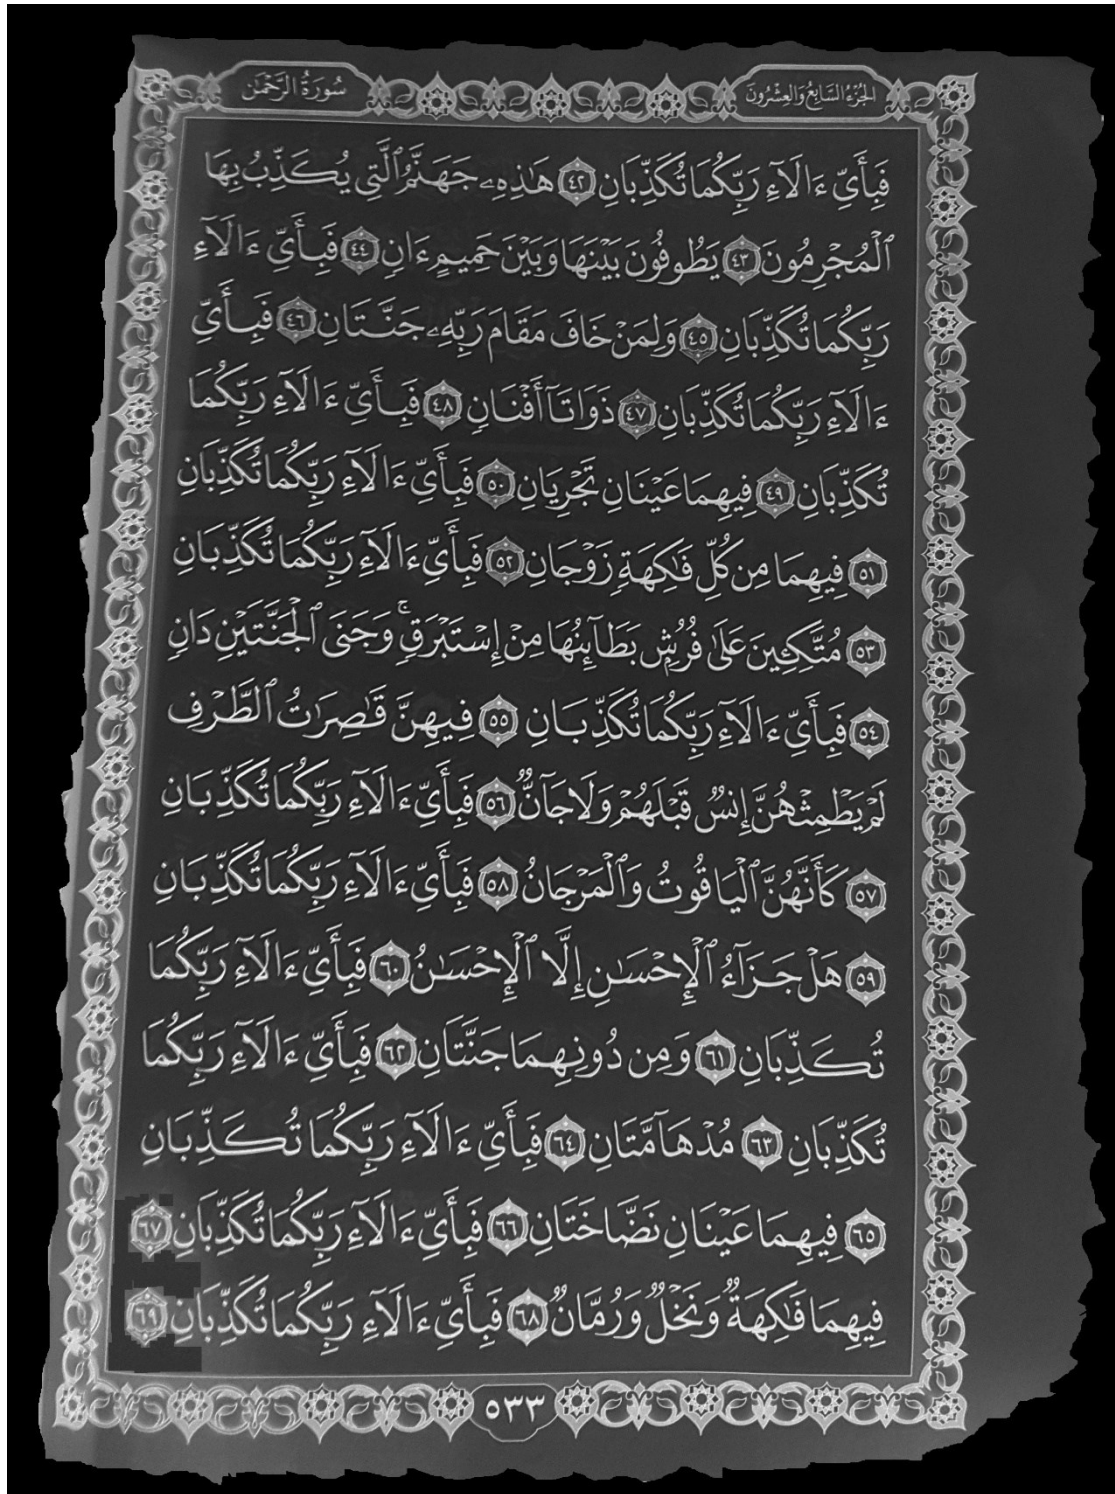 سُورَةُ الرَّحْمَٰن
الجُزْءُ السَّابِعُ وَالعِشْرُونَ
فَبِأَيِّ ءَالَآءِ رَبِّكُمَا تُكَذِّبَانِ ٤٢ هَٰذِهِۦ جَهَنَّمُ ٱلَّتِى يُكَذِّبُ بِهَا
ٱلْمُجْرِمُونَ ٤٣ يَطُوفُونَ بَيْنَهَا وَبَيْنَ حَمِيمٍ ءَانٍ ٤٤ فَبِأَيِّ ءَالَآءِ
رَبِّكُمَا تُكَذِّبَانِ ٤٥ وَلِمَنْ خَافَ مَقَامَ رَبِّهِۦ جَنَّتَانِ ٤٦ فَبِأَيِّ
ءَالَآءِ رَبِّكُمَا تُكَذِّبَانِ ٤٧ ذَوَاتَآ أَفْنَانٍ ٤٨ فَبِأَيِّ ءَالَآءِ رَبِّكُمَا
تُكَذِّبَانِ ٤٩ فِيهِمَا عَيْنَانِ تَجْرِيَانِ ٥٠ فَبِأَيِّ ءَالَآءِ رَبِّكُمَا تُكَذِّبَانِ
٥١ فِيهِمَا مِن كُلِّ فَٰكِهَةٍ زَوْجَانِ ٥٢ فَبِأَيِّ ءَالَآءِ رَبِّكُمَا تُكَذِّبَانِ
٥٣ مُتَّكِـِٔينَ عَلَىٰ فُرُشٍۭ بَطَآئِنُهَا مِنْ إِسْتَبْرَقٍۚ وَجَنَى ٱلْجَنَّتَيْنِ دَانٍ
٥٤ فَبِأَيِّ ءَالَآءِ رَبِّكُمَا تُكَذِّبَانِ ٥٥ فِيهِنَّ قَٰصِرَٰتُ ٱلطَّرْفِ
لَمْ يَطْمِثْهُنَّ إِنسٌ قَبْلَهُمْ وَلَا جَآنٌّ ٥٦ فَبِأَيِّ ءَالَآءِ رَبِّكُمَا تُكَذِّبَانِ
٥٧ كَأَنَّهُنَّ ٱلْيَاقُوتُ وَٱلْمَرْجَانُ ٥٨ فَبِأَيِّ ءَالَآءِ رَبِّكُمَا تُكَذِّبَانِ
٥٩ هَلْ جَزَآءُ ٱلْإِحْسَٰنِ إِلَّا ٱلْإِحْسَٰنُ ٦٠ فَبِأَيِّ ءَالَآءِ رَبِّكُمَا
تُكَذِّبَانِ ٦١ وَمِن دُونِهِمَا جَنَّتَانِ ٦٢ فَبِأَيِّ ءَالَآءِ رَبِّكُمَا
تُكَذِّبَانِ ٦٣ مُدْهَآمَّتَانِ ٦٤ فَبِأَيِّ ءَالَآءِ رَبِّكُمَا تُكَذِّبَانِ
٦٥ فِيهِمَا عَيْنَانِ نَضَّاخَتَانِ ٦٦ فَبِأَيِّ ءَالَآءِ رَبِّكُمَا تُكَذِّبَانِ ٦٧
فِيهِمَا فَٰكِهَةٌ وَنَخْلٌ وَرُمَّانٌ ٦٨ فَبِأَيِّ ءَالَآءِ رَبِّكُمَا تُكَذِّبَانِ ٦٩
٥٣٣